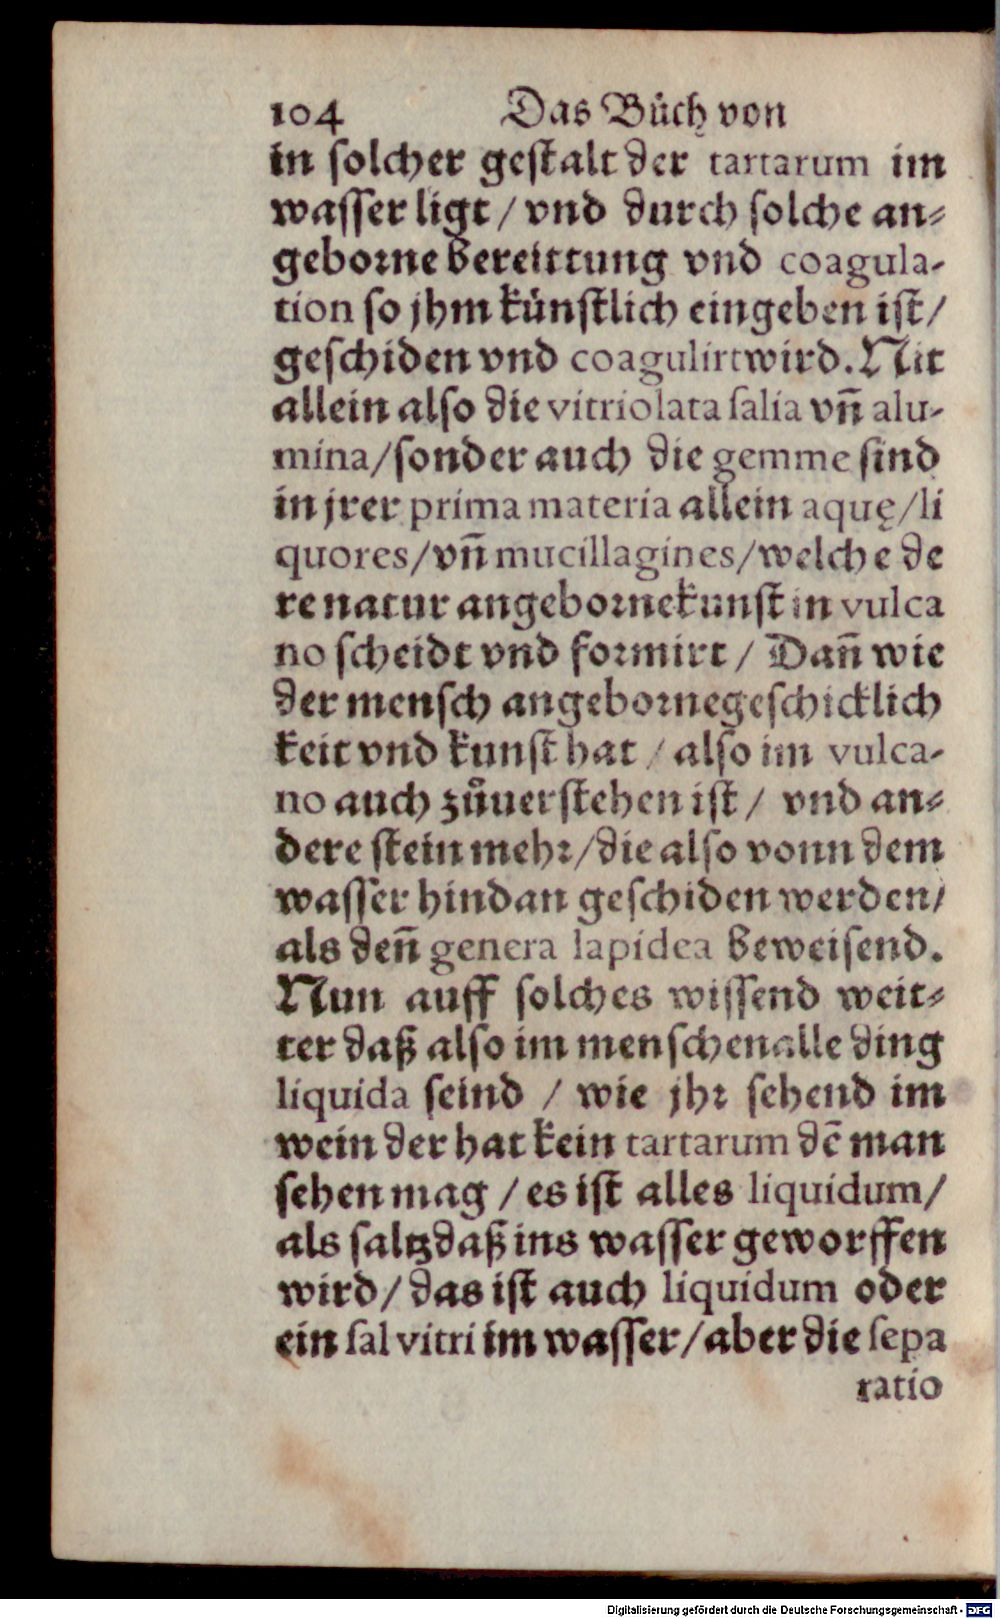 104 Das Bůch von
in solcher gestalt der tartarum im
wasser ligt / vnd durch solche an⸗
geborne bereittung vnd coagula-
tion so jhm künstlich eingeben ist /
geschiden vnd coagulirt wird. Nit
allein also die vitriolata salia vñ alu-
mina / sonder auch die gemme sind
in jrer prima materia allein aquę / li
quores / vñ mucillagines / welche de
re natur angeborne kunst in vulca
no scheidt vnd formirt / Dañ wie
der mensch angeborne geschicklich
keit vnd kunst hat / also im vulca-
no auch zůuerstehen ist / vnd an⸗
dere stein mehr / die also vonn dem
wasser hindan geschiden werden /
als deñ genera lapidea beweisend.
Nun auff solches wissend weit⸗
ter daß also im menschen alle ding
liquida seind / wie jhr sehend im
wein der hat kein tartarum dē man
sehen mag / es ist alles liquidum /
als saltz daß ins wasser geworffen
wird / das ist auch liquidum oder
ein sal vitri im wasser / aber die sepa
ratio
Digitalisierung gefördert durch die Deutsche Forschungsgemeinschaft - DFG